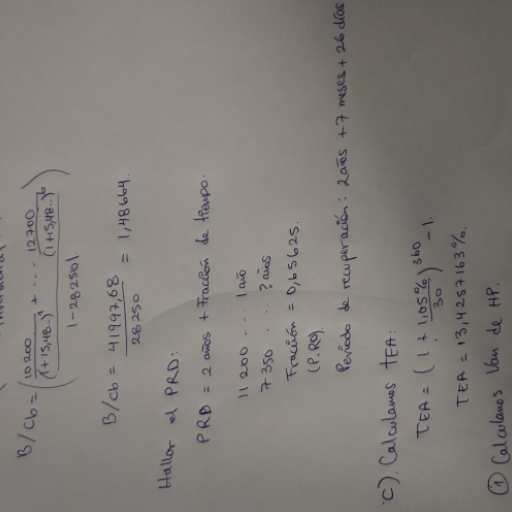 B/Cb = ( 10200 / (1+15,48..)¹ + ... 12700 / (1+15,48..)⁶ )
|-28250|
B/cb = 41997,68 / 28250 = 1,48664.
Hallar el PRD:
PRD = 2 años + Fracción de tiempo.
11 200 ... 1 año
7 350 ... ? años
Fracción = 0,65625.
(P.RD).
Periodo de recuperación: 2 años + 7 meses + 26 días
C). Calculamos TEA:
TEA = ( 1 + 1,05% / 30 )³⁶⁰ - 1.
TEA = 13,4257163%.
① Calculamos Van de HP.